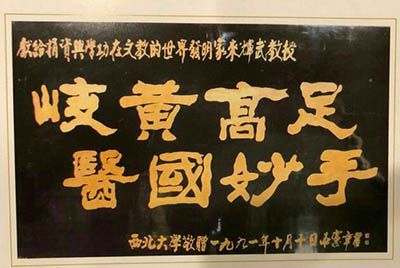 獻給捐資興學功在文教的世界發明家來輝武教授
岐黄髙足
醫國妙手
西北大学敬贈一九九一年十月十日憲章書